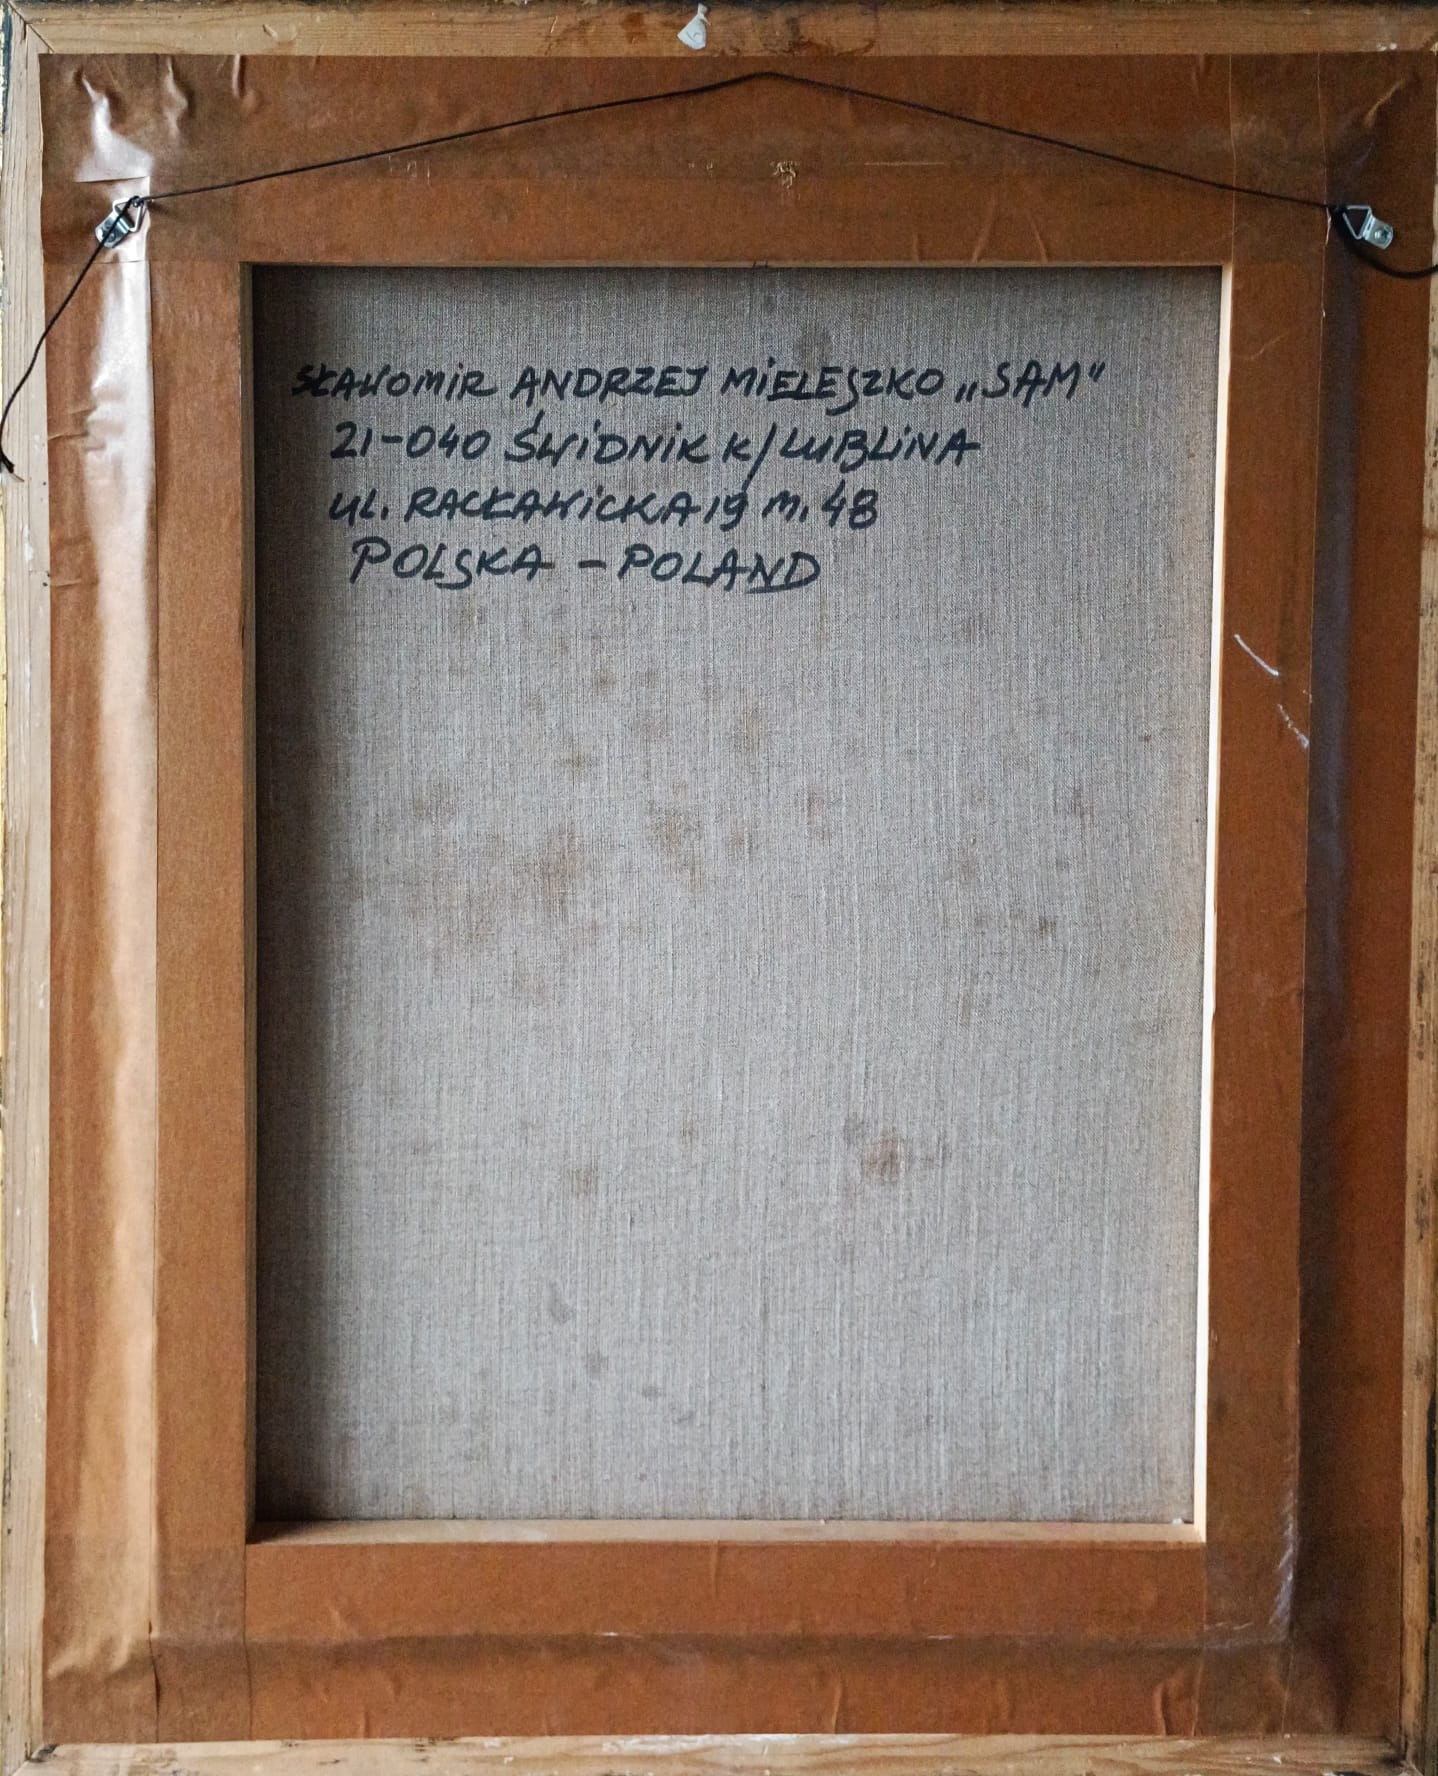 SŁAWOMIR ANDRZEJ MIELESZKO „SAM"
21-040 ŚWIDNIK K/LUBLINA
UL. RACŁAWICKA 19 m. 48
POLSKA – POLAND